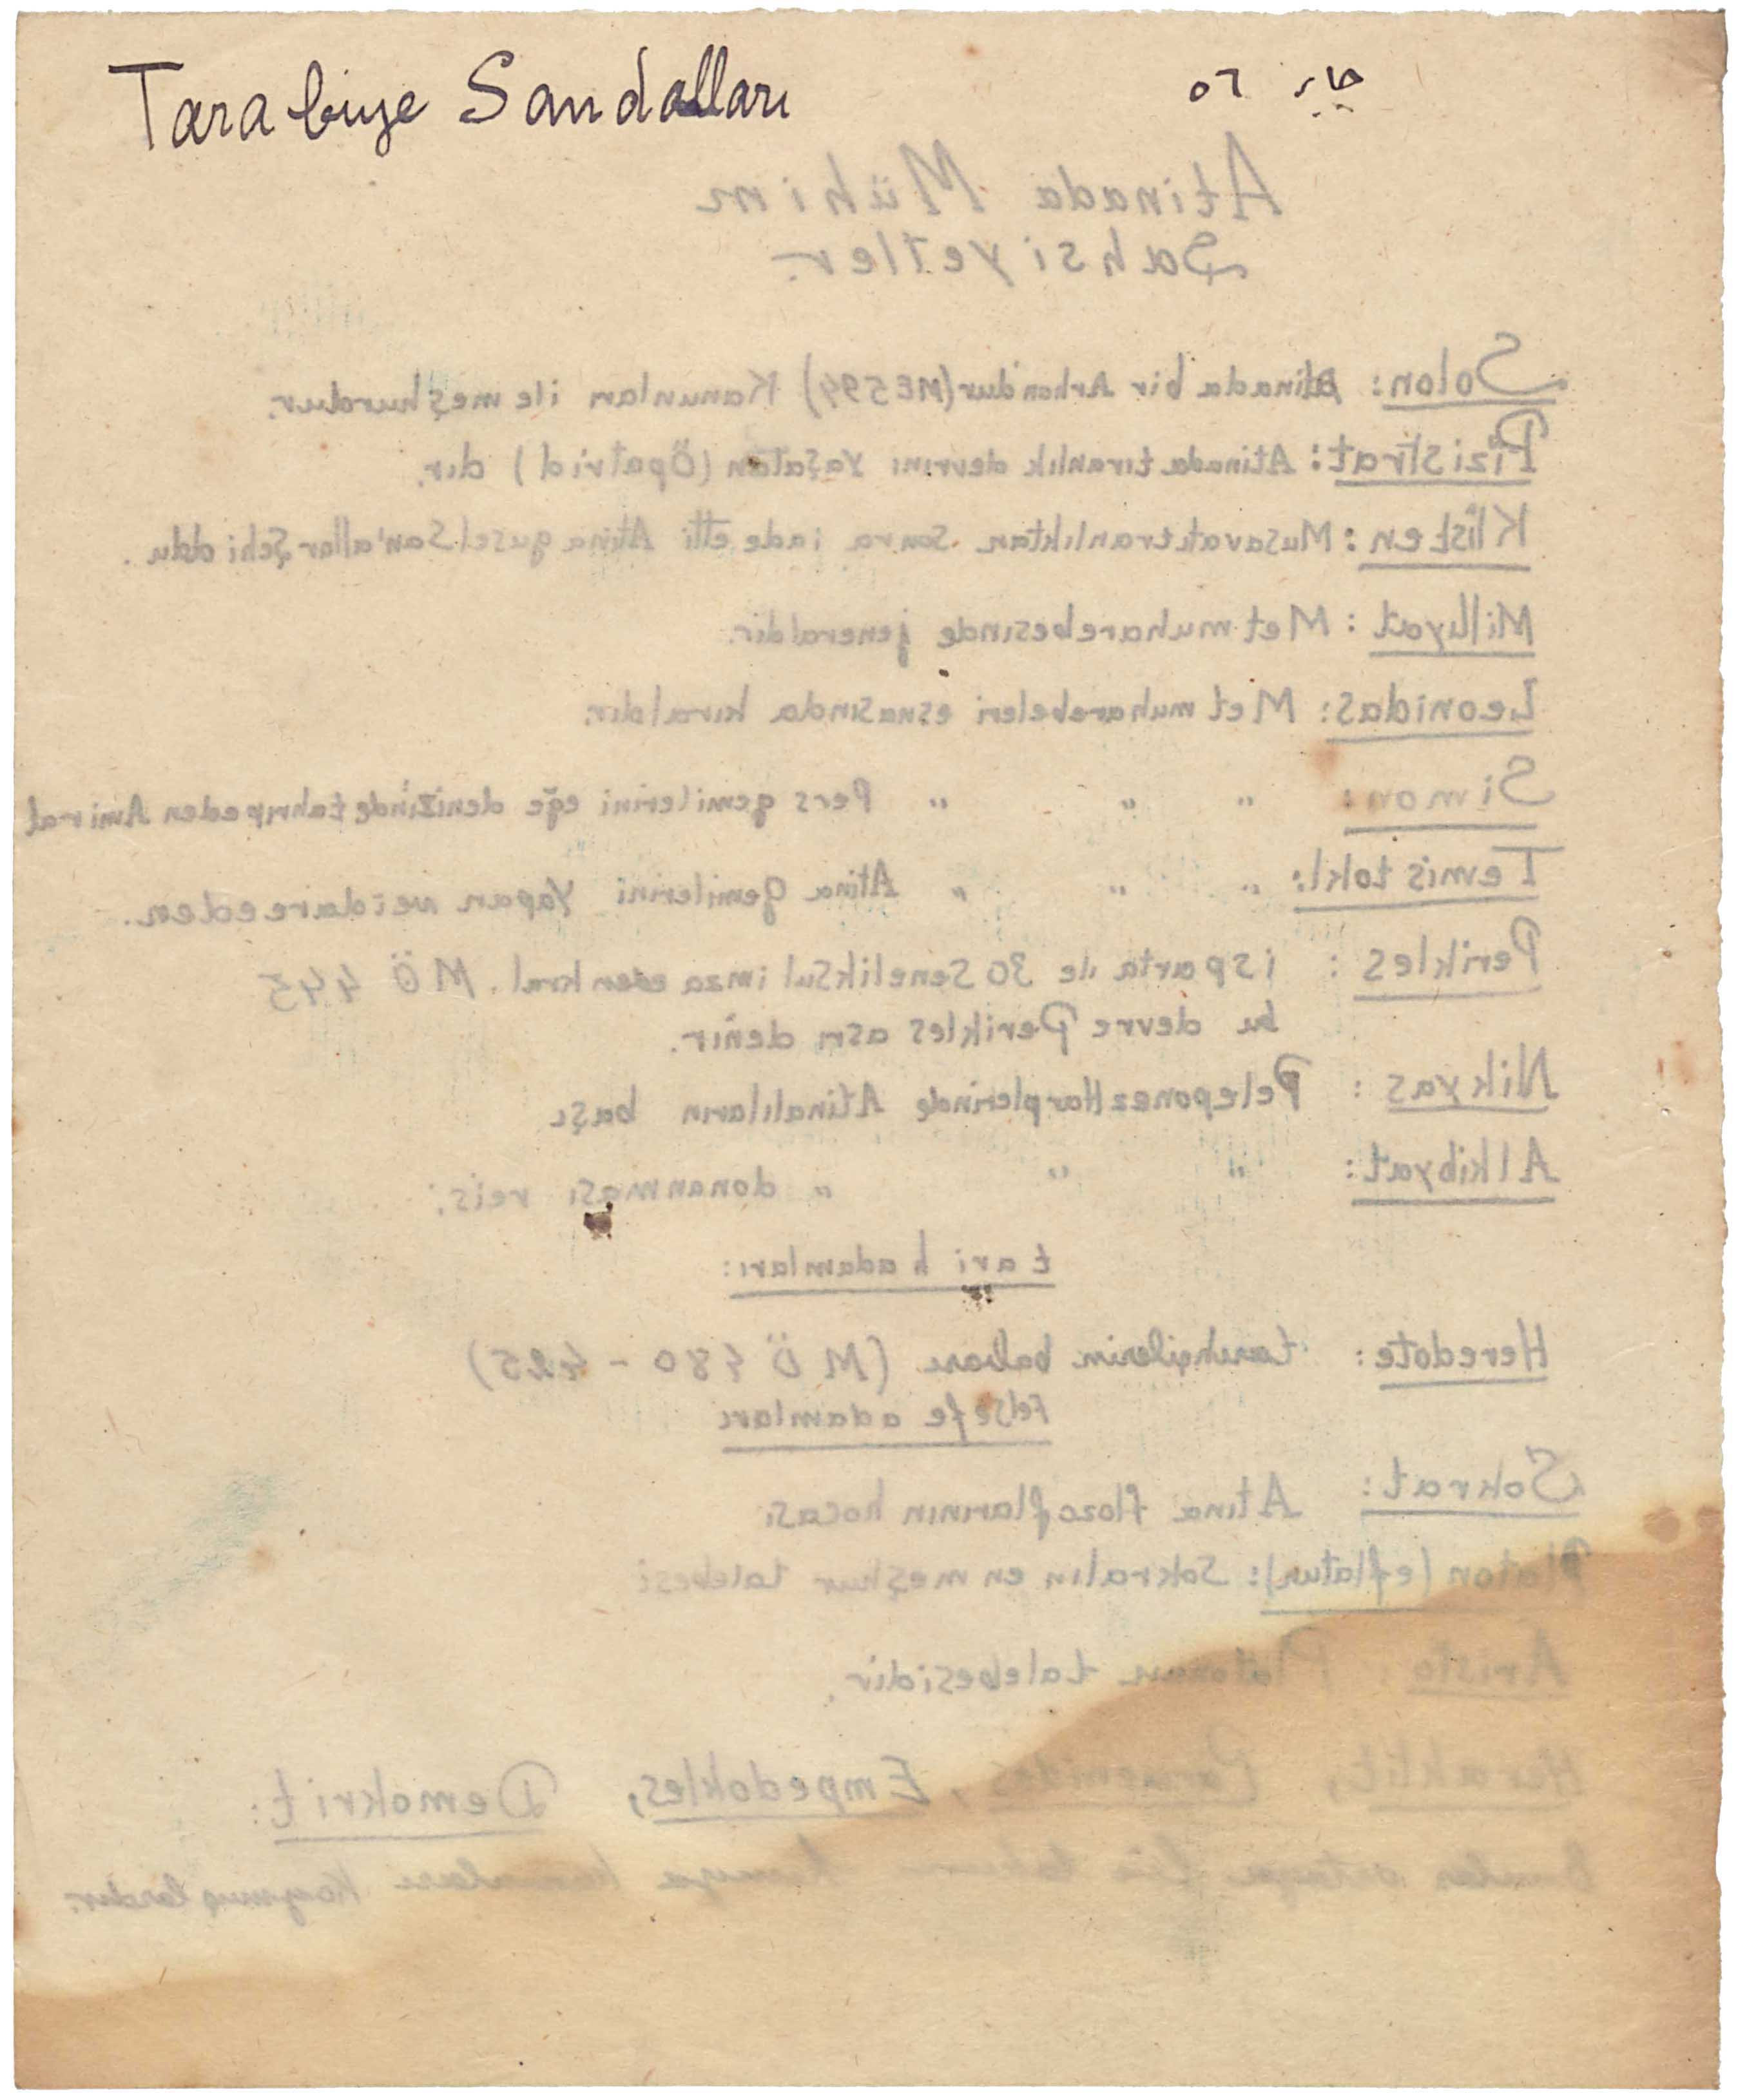 Tarabiye Sandalları
Atinada Mühim
Şahsiyetler.
Solon: Atinada bir Arhondur (ME 594) Kanunları ile meşhurdur.
Pizistrat: Atinada tiranlık devrını Yaşatan (Öpatrid) dır.
Klisten: Musavatıtıranlıktan sonra iade etti Atina guselSan'atlar Şehi oldu.
Millyat: Met muharebesınde jeneraldir.
Leonidas: Met muharebeleri esnasında kıraldır.
Simon: " " " Pers gemilerini eğe denizinde tahrip eden Amiral
Temistokl: " " " Atina Gemilerini Yapan ve idare eden.
Perikles: isparta ile 30 Seneliksul imza eden kral. MÖ 445
bu devre Perikles asrı denir.
Nikyas: Peleponez Harplerinde Atinalıların başı
Alkibyat: " " " donanması reisi
tarih adamları:
Heredote: tarihçilerin babası (MÖ 480 - 425)
Felsefe adamları
Sokrat: Atina flozoflarının hocası
Platon (eflatun): Sokratın en meşhur talebesi
Aristo: Platonun talebesidir.
Heraklit, Parmenides, Empedokles, Demokrit:
koymuşlardır.